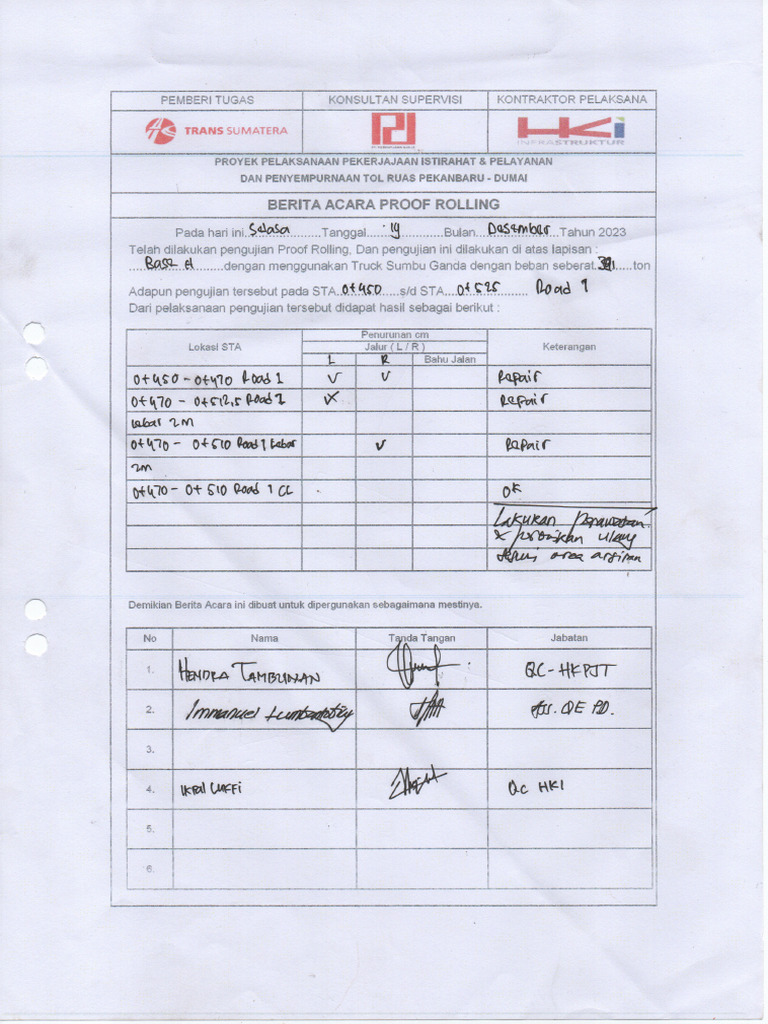 PEMBERI TUGAS KONSULTAN SUPERVISI KONTRAKTOR PELAKSANA
TRANS SUMATERA
HKi
INFRASTRUKTUR
PROYEK PELAKSANAAN PEKERJAJAAN ISTIRAHAT & PELAYANAN
DAN PENYEMPURNAAN TOL RUAS PEKANBARU - DUMAI
BERITA ACARA PROOF ROLLING
Pada hari ini Selasa Tanggal 19 Bulan Desember Tahun 2023
Telah dilakukan pengujian Proof Rolling, Dan pengujian ini dilakukan di atas lapisan :
Base A dengan menggunakan Truck Sumbu Ganda dengan beban seberat ton
Adapun pengujian tersebut pada STA 0+450 s/d STA 0+525 Road 1
Dari pelaksanaan pengujian tersebut didapat hasil sebagai berikut :
Lokasi STA Penurunan cm Keterangan
Jalur ( L / R )
L R Bahu Jalan
0+450 - 0+470 Road 1 v v Repair
0+470 - 0+512,5 Road 1 Repair
lebar 2M
0+470 - 0+510 Road 1 Lebar v Repair
2M
0+470 - 0+510 Road 1 CL OK
Lakukan perawatan
ulang
area
Demikian Berita Acara ini dibuat untuk dipergunakan sebagaimana mestinya.
No Nama Tanda Tangan Jabatan
1. HENDRA TAMBUNAN QC-HKPJT
2. Immanuel QE PD.
3.
4. QC HKI
5.
6.